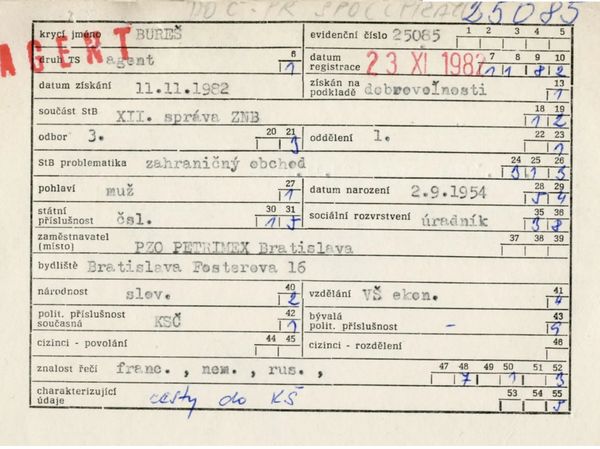 25085
AGENT
krycí jméno BUREŠ evidenční číslo 25085 1 2 3 4 5
druh TS agent 6 1 datum registrace 23 XI. 1982 7 8 9 10 1 1 8 2
datum získání 11.11.1982 získán na podkladě dobrovoľnosti 13 1
součást StB XII. správa ZNB 18 19 1 2
odbor 3. 20 21 3 oddělení 1. 22 23 1
StB problematika zahraničný obchod 24 25 26 3 1 3
pohlaví muž 27 1 datum narození 2.9.1954 28 29 5 4
státní příslušnost čsl. 30 31 1 5 sociální rozvrstvení úradník 35 36 3 8
zaměstnavatel (místo) PZO PETRIMEX Bratislava 37 38 39
bydliště Bratislava Fosterova 16
národnost slov. 40 2 vzdělání VŠ ekon. 41 4
polit. příslušnost současná KSČ 42 1 bývalá polit. příslušnost - 43 5
cizinci - povolání 44 45 cizinci - rozdělení 46
znalost řečí franc., nem., rus., 47 48 49 50 51 52 7 1 3
charakterizující údaje cesty do KŠ 53 54 55 5